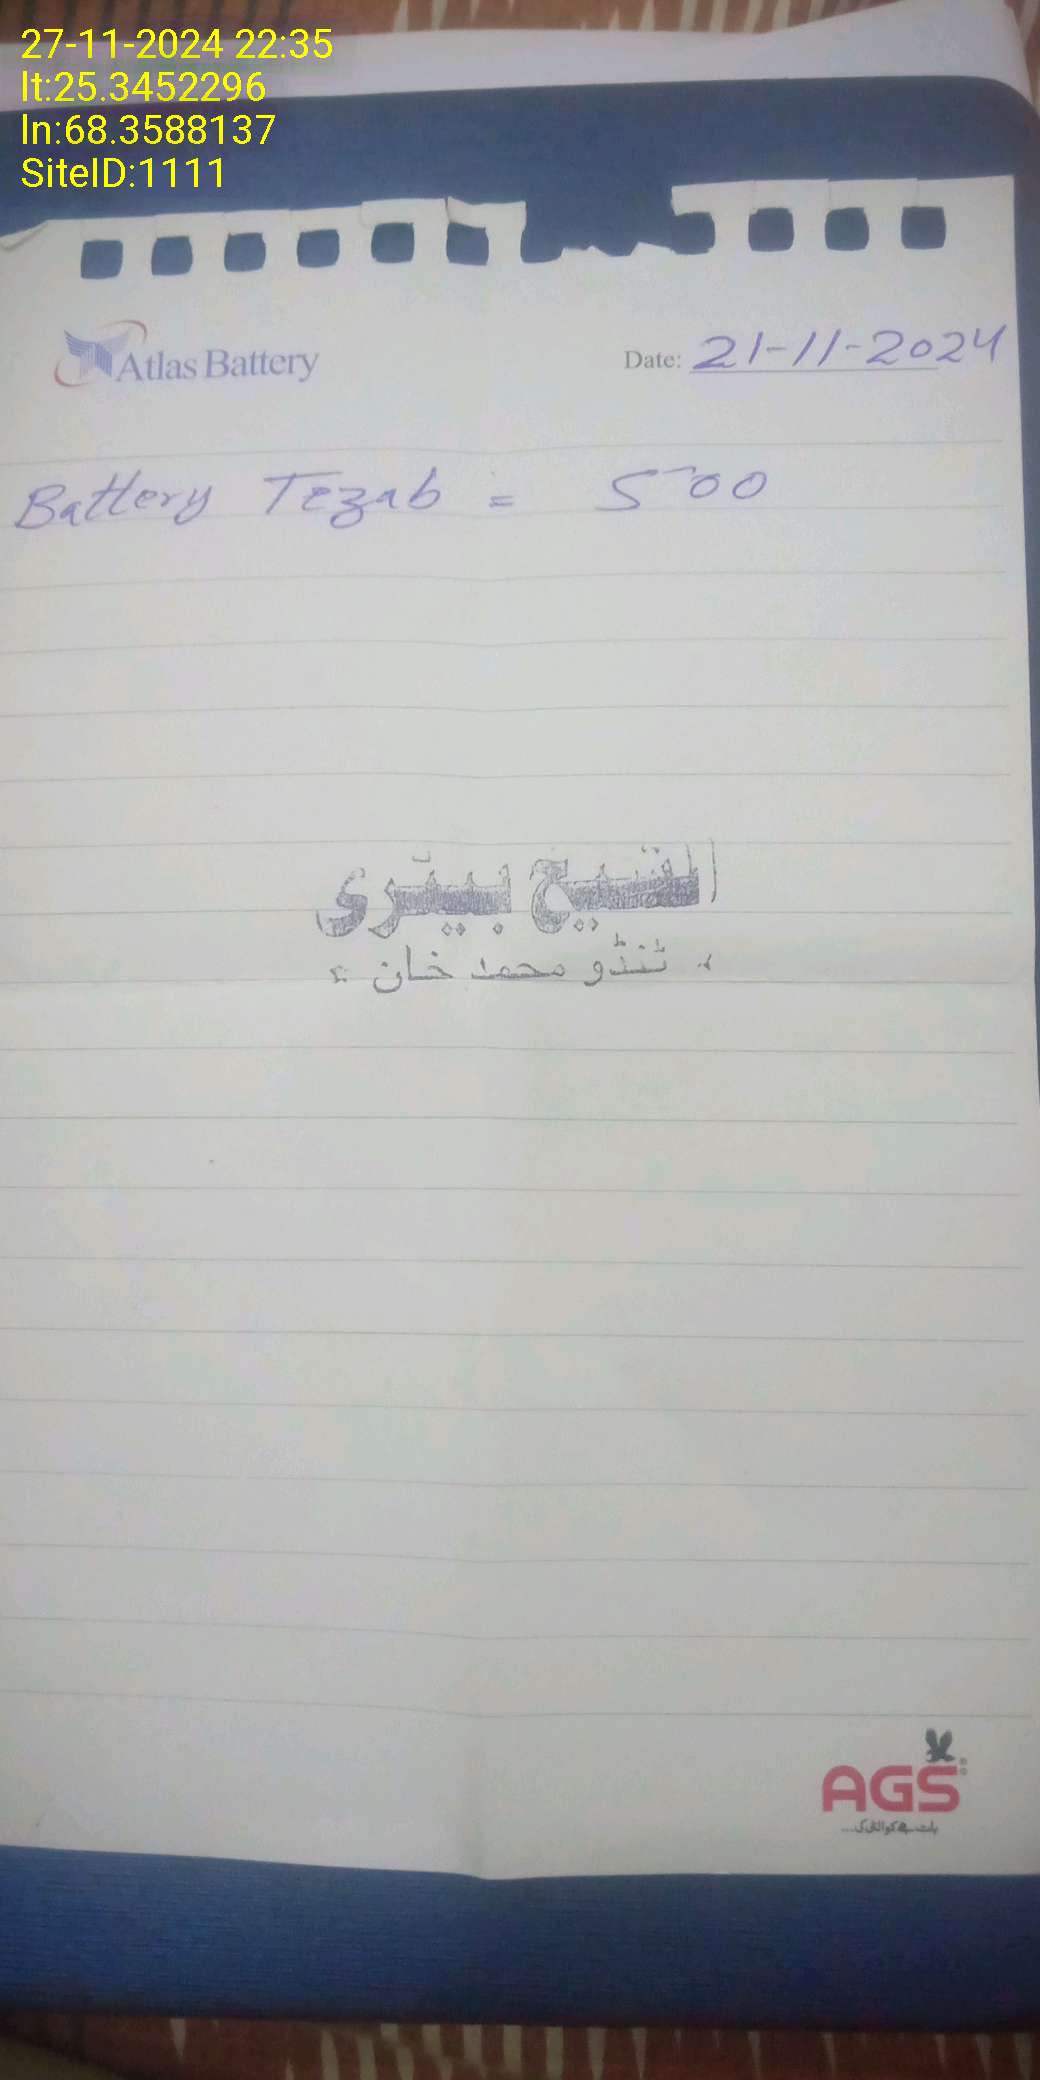 27-11-2024 22:35
lt:25.3452296
ln:68.3588137
SiteID:1111
Atlas Battery
Date: 21-11-2024
Battery Tezab = 500
الشیخ بیٹری
ٹنڈو محمد خان
AGS
بات ہے کوالٹی کی...